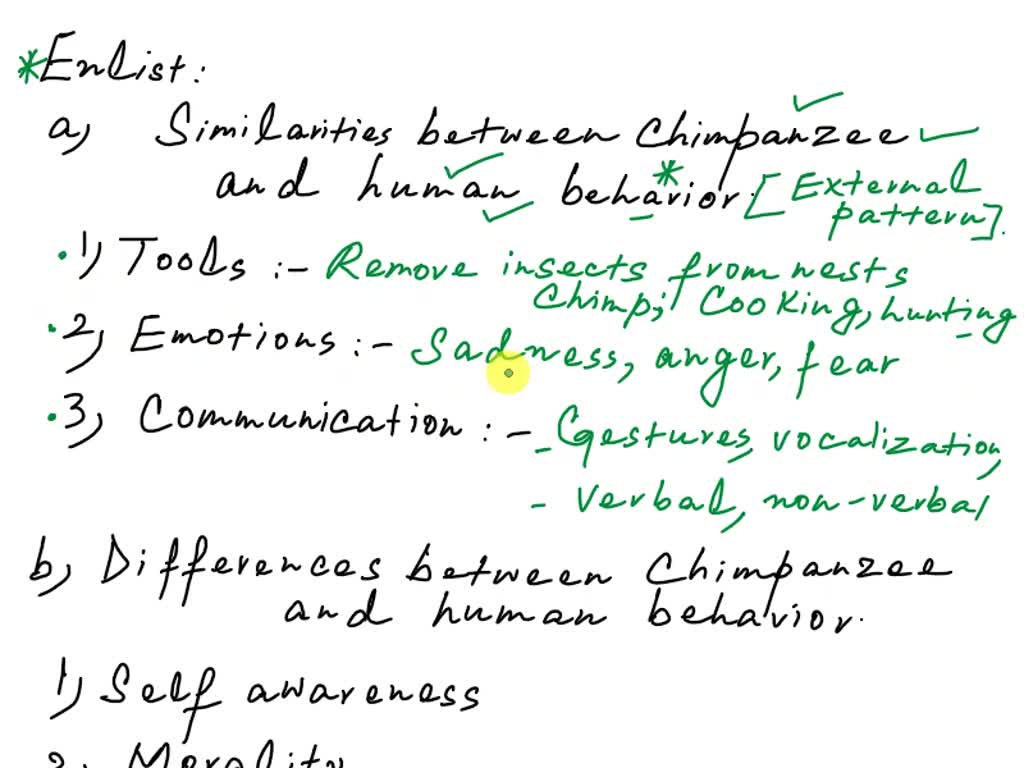 *Enlist:
a) Similarities between Chimpanzee
and human behavior. [External
pattern].
1) Tools :- Remove insects from nests
Chimp; Cooking, hunting
2) Emotions :- Sadness, anger, fear
3) Communication :- - Gestures, vocalization,
- Verbal, non-verbal
b) Differences between Chimpanzee
and human behavior.
1) Self awareness
2) Morality